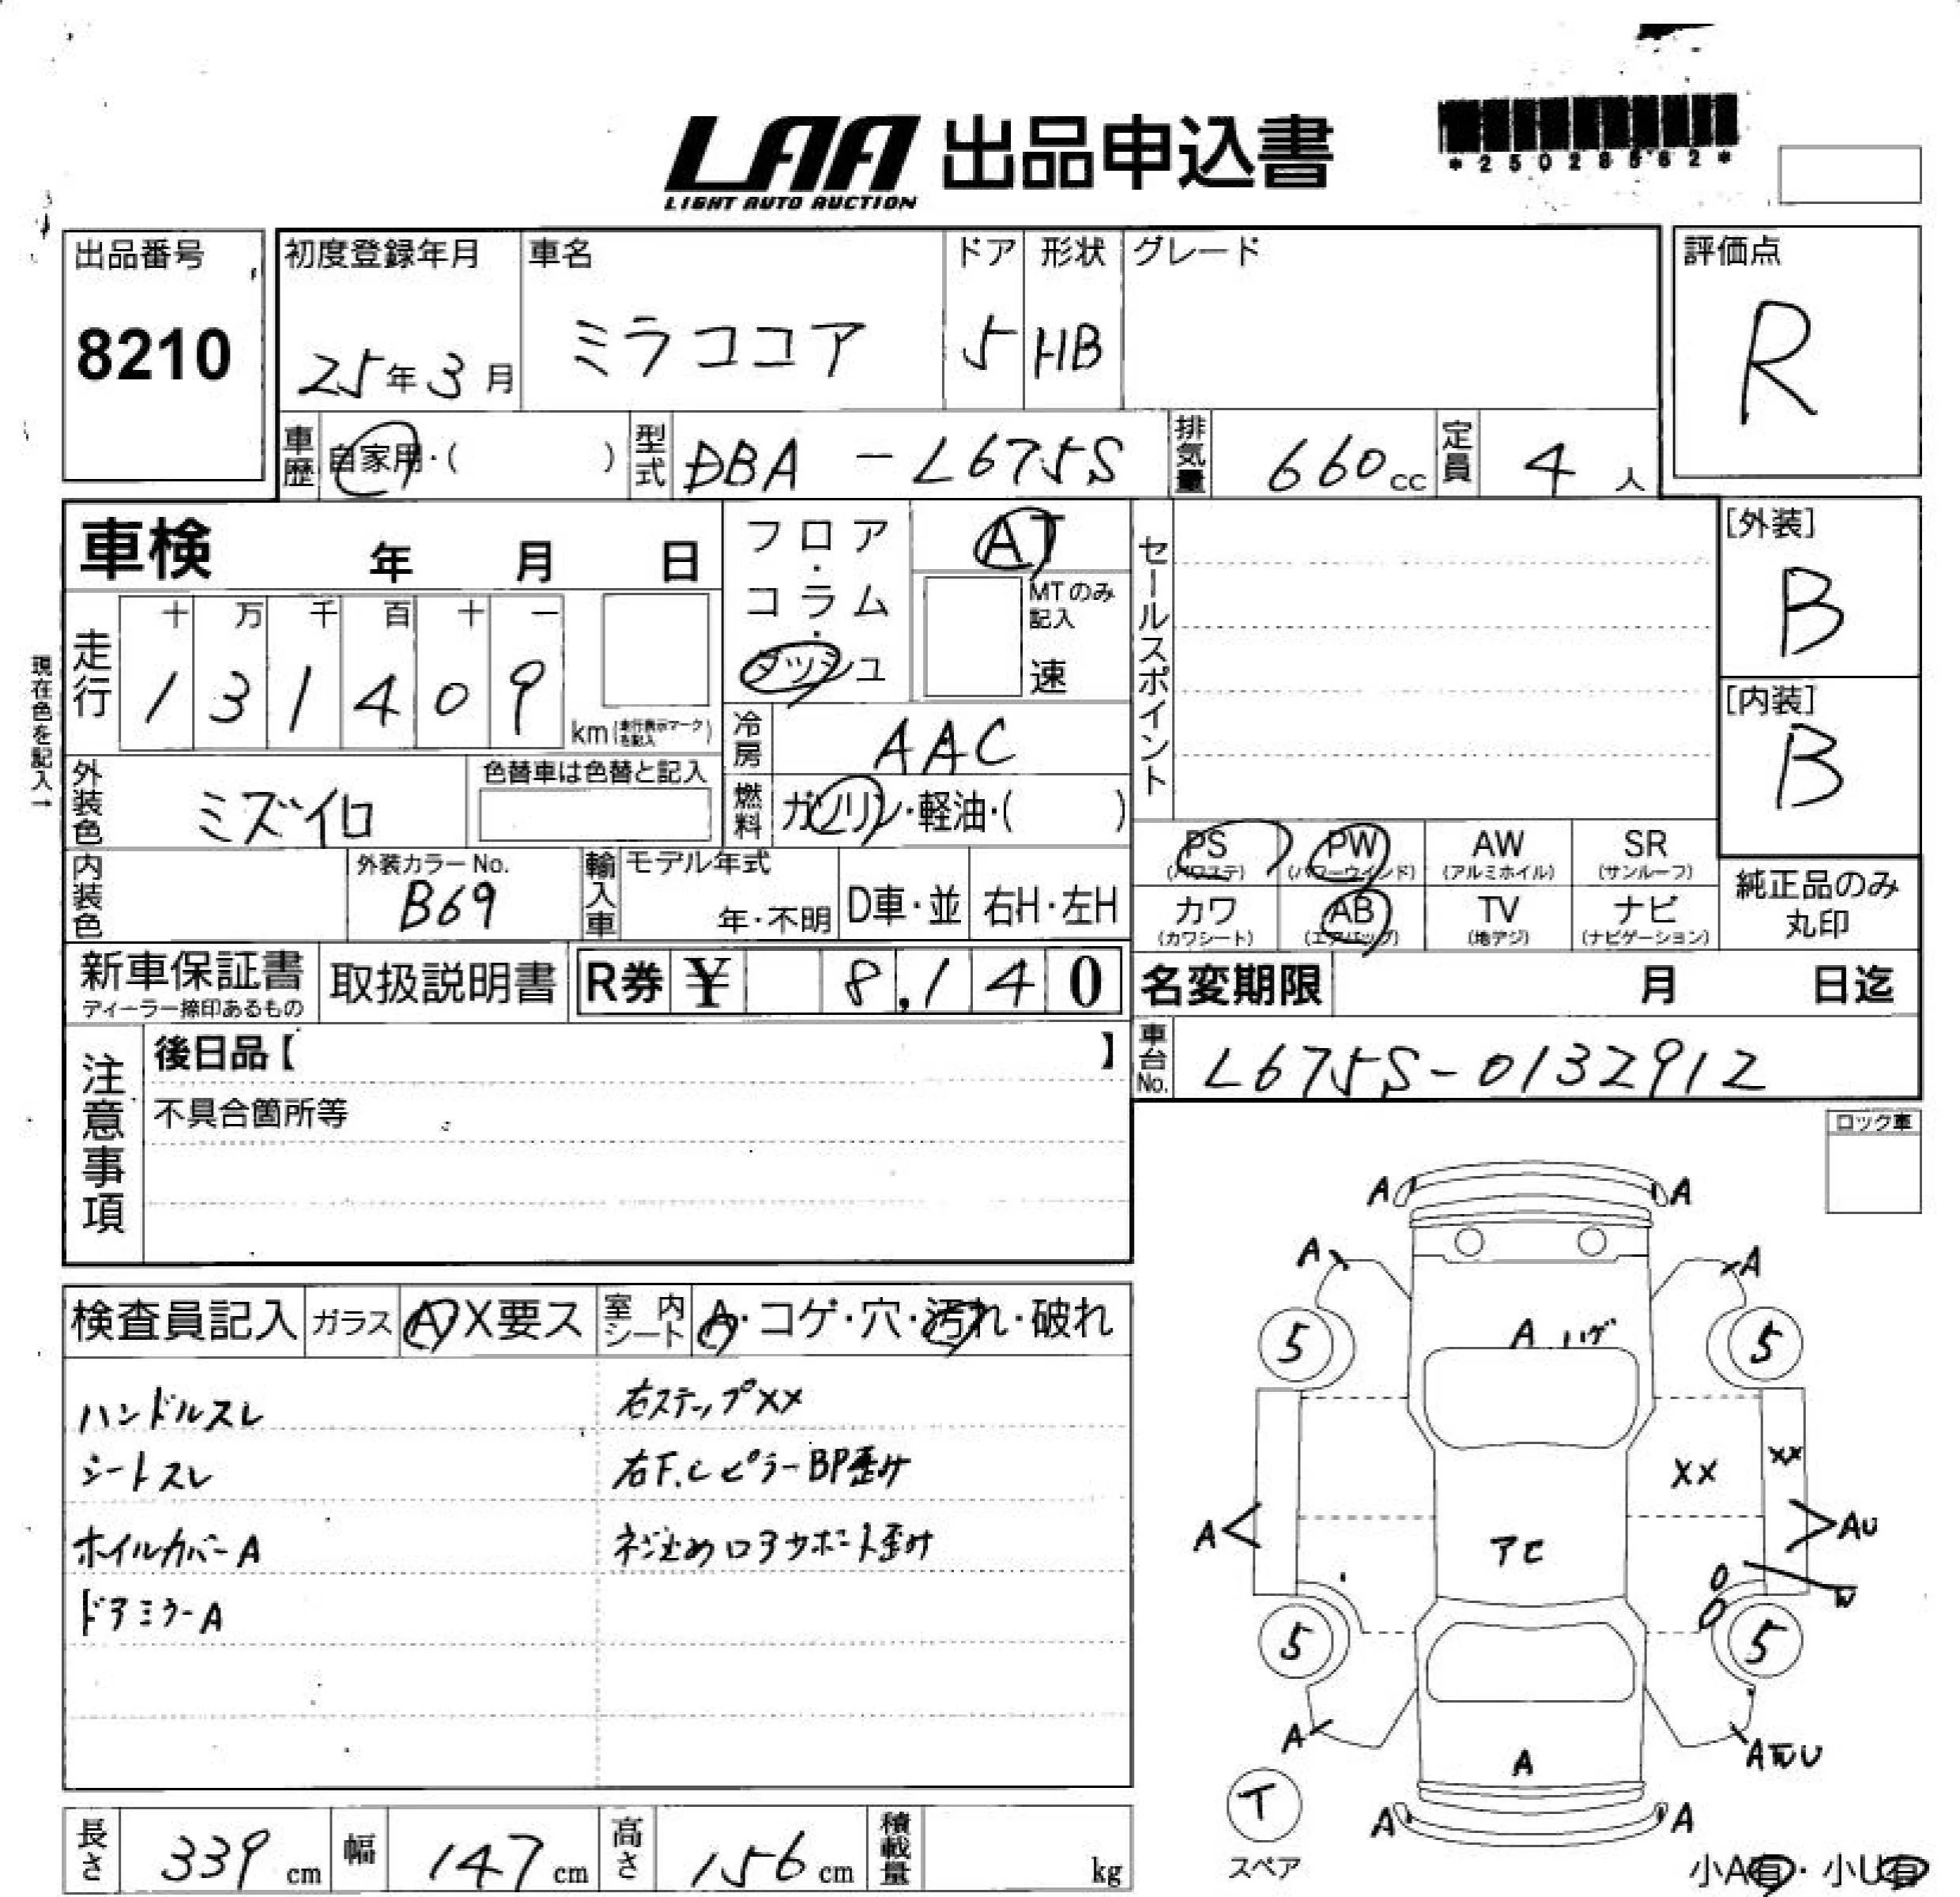 LAA 出品申込書
LIGHT AUTO AUCTION
*25028562*
出品番号
8210
初度登録年月
25年3月
車名
ミラココア
ドア
5
形状
HB
グレード
評価点
R
車歴
自家用・( )
型式
DBA-L675S
排気量
660cc
定員
4人
車検 年 月 日
フロア・コラム・ダッシュ
AT
MTのみ記入
速
セールスポイント
[外装]
B
[内装]
B
現在色を記入→
走行
十 万 千 百 十 一
1 3 1 4 0 9
km(走行表示マークを記入)
冷房
AAC
外装色
ミズイロ
色替車は色替と記入
燃料
ガソリン・軽油・( )
PS
(パワステ)
PW
(パワーウインド)
AW
(アルミホイル)
SR
(サンルーフ)
カワ
(カワシート)
AB
(エアバッグ)
TV
(地デジ)
ナビ
(ナビゲーション)
純正品のみ
丸印
内装色
外装カラーNo.
B69
輸入車
モデル年式
年・不明
D車・並
右H・左H
新車保証書
ディーラー捺印あるもの
取扱説明書
R券 ¥ 8,140
名変期限 月 日迄
車台No.
L675S-0132912
注意事項
後日品【 】
不具合箇所等
ロック車
検査員記入
ガラス
A X要ス
室内シート
A・コゲ・穴・汚れ・破れ
ハンドルスレ
右ステップXX
シートスレ
右F.CピラーBP歪み
ホイルカバーA
ネジ止めロアサポート歪み
ドアミラーA
A A
A A
A ハゲ
5 5
XX XX
A AU
アセ
W
5 5
A A
T
スペア
A A
小A有・小U有
長さ
339cm
幅
147cm
高さ
156cm
積載量
kg